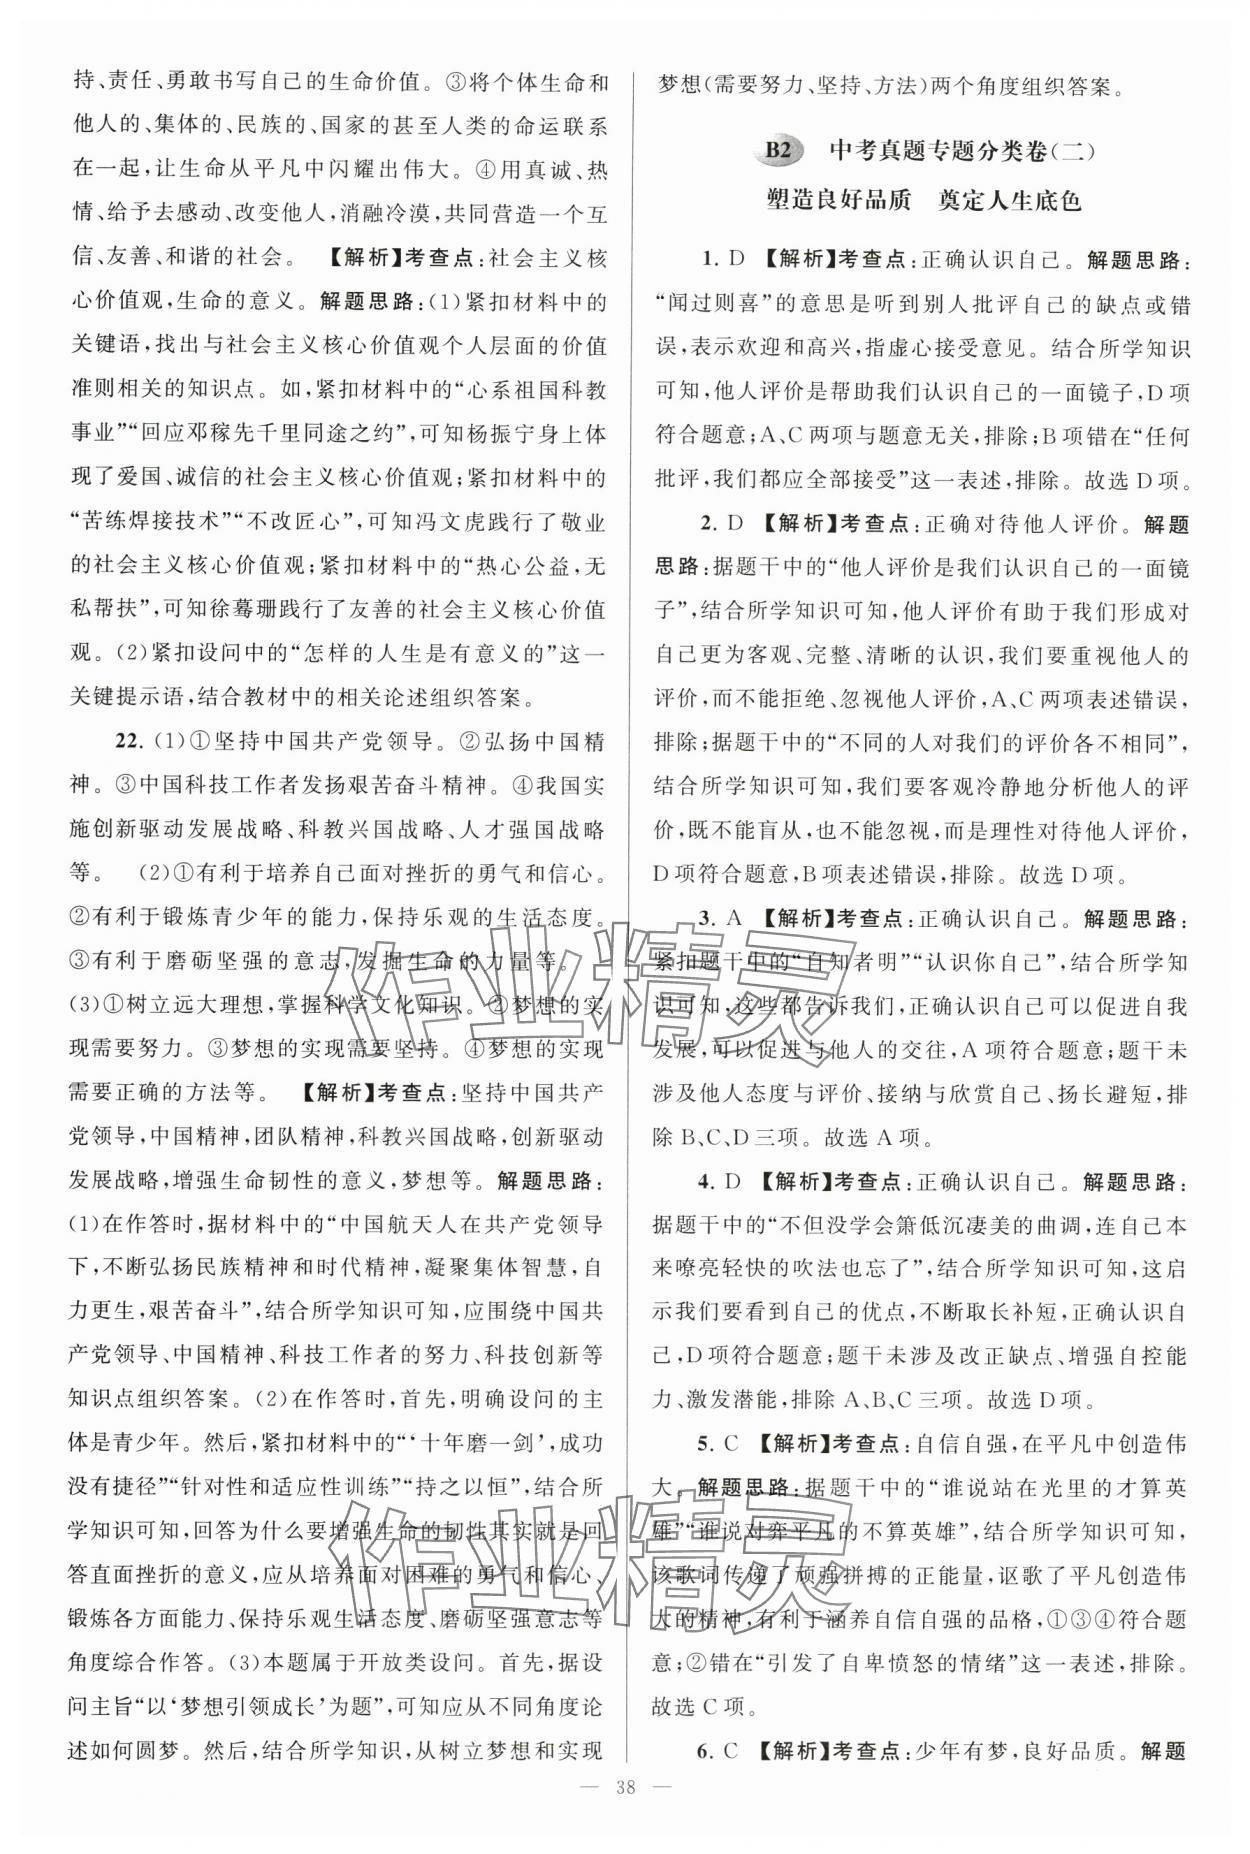 持、责任、勇敢书写自己的生命价值。③将个体生命和
他人的、集体的、民族的、国家的甚至人类的命运联系
在一起,让生命从平凡中闪耀出伟大。④用真诚、热
情、给予去感动、改变他人,消融冷漠,共同营造一个互
信、友善、和谐的社会。 【解析】考查点:社会主义核
心价值观,生命的意义。解题思路:(1)紧扣材料中的
关键语,找出与社会主义核心价值观个人层面的价值
准则相关的知识点。如,紧扣材料中的“心系祖国科教
事业”“回应邓稼先千里同途之约”,可知杨振宁身上体
现了爱国、诚信的社会主义核心价值观;紧扣材料中的
“苦练焊接技术”“不改匠心”,可知冯文虎践行了敬业
的社会主义核心价值观;紧扣材料中的“热心公益,无
私帮扶”,可知徐蓦珊践行了友善的社会主义核心价值
观。(2)紧扣设问中的“怎样的人生是有意义的”这一
关键提示语,结合教材中的相关论述组织答案。
22. (1)①坚持中国共产党领导。②弘扬中国精
神。③中国科技工作者发扬艰苦奋斗精神。④我国实
施创新驱动发展战略、科教兴国战略、人才强国战略
等。 (2)①有利于培养自己面对挫折的勇气和信心。
②有利于锻炼青少年的能力,保持乐观的生活态度。
③有利于磨砺坚强的意志,发掘生命的力量等。
(3)①树立远大理想,掌握科学文化知识。②梦想的实
现需要努力。③梦想的实现需要坚持。④梦想的实现
需要正确的方法等。 【解析】考查点:坚持中国共产
党领导,中国精神,团队精神,科教兴国战略,创新驱动
发展战略,增强生命韧性的意义,梦想等。解题思路:
(1)在作答时,据材料中的“中国航天人在共产党领导
下,不断弘扬民族精神和时代精神,凝聚集体智慧,自
力更生,艰苦奋斗”,结合所学知识可知,应围绕中国共
产党领导、中国精神、科技工作者的努力、科技创新等
知识点组织答案。(2)在作答时,首先,明确设问的主
体是青少年。然后,紧扣材料中的“‘十年磨一剑’,成功
没有捷径”“针对性和适应性训练”“持之以恒”,结合所
学知识可知,回答为什么要增强生命的韧性其实就是回
答直面挫折的意义,应从培养面对困难的勇气和信心、
锻炼各方面能力、保持乐观生活态度、磨砺坚强意志等
角度综合作答。(3)本题属于开放类设问。首先,据设
问主旨“以‘梦想引领成长’为题”,可知应从不同角度论
述如何圆梦。然后,结合所学知识,从树立梦想和实现
梦想(需要努力、坚持、方法)两个角度组织答案。
B2 中考真题专题分类卷(二)
塑造良好品质 奠定人生底色
1. D 【解析】考查点:正确认识自己。解题思路:
“闻过则喜”的意思是听到别人批评自己的缺点或错
误,表示欢迎和高兴,指虚心接受意见。结合所学知识
可知,他人评价是帮助我们认识自己的一面镜子,D项
符合题意;A、C两项与题意无关,排除;B项错在“任何
批评,我们都应全部接受”这一表述,排除。故选D项。
2. D 【解析】考查点:正确对待他人评价。解题
思路:据题干中的“他人评价是我们认识自己的一面镜
子”,结合所学知识可知,他人评价有助于我们形成对
自己更为客观、完整、清晰的认识,我们要重视他人的
评价,而不能拒绝、忽视他人评价,A、C两项表述错误,
排除;据题干中的“不同的人对我们的评价各不相同”,
结合所学知识可知,我们要客观冷静地分析他人的评
价,既不能盲从,也不能忽视,而是理性对待他人评价,
D项符合题意,B项表述错误,排除。故选D项。
3. A 【解析】考查点:正确认识自己。解题思路:
紧扣题干中的“自知者明”“认识你自己”,结合所学知
识可知,这些都告诉我们,正确认识自己可以促进自我
发展,可以促进与他人的交往,A项符合题意;题干未
涉及他人态度与评价、接纳与欣赏自己、扬长避短,排
除B、C、D三项。故选A项。
4. D 【解析】考查点:正确认识自己。解题思路:
据题干中的“不但没学会箫低沉凄美的曲调,连自己本
来嘹亮轻快的吹法也忘了”,结合所学知识可知,这启
示我们要看到自己的优点,不断取长补短,正确认识自
己,D项符合题意;题干未涉及改正缺点、增强自控能
力、激发潜能,排除A、B、C三项。故选D项。
5. C 【解析】考查点:自信自强,在平凡中创造伟
大。解题思路:据题干中的“谁说站在光里的才算英
雄”“谁说对弈平凡的不算英雄”,结合所学知识可知,
该歌词传递了顽强拼搏的正能量,讴歌了平凡创造伟
大的精神,有利于涵养自信自强的品格,①③④符合题
意;②错在“引发了自卑愤怒的情绪”这一表述,排除。
故选C项。
6. C 【解析】考查点:少年有梦,良好品质。解题
— 38 —
作业精灵
作业精灵